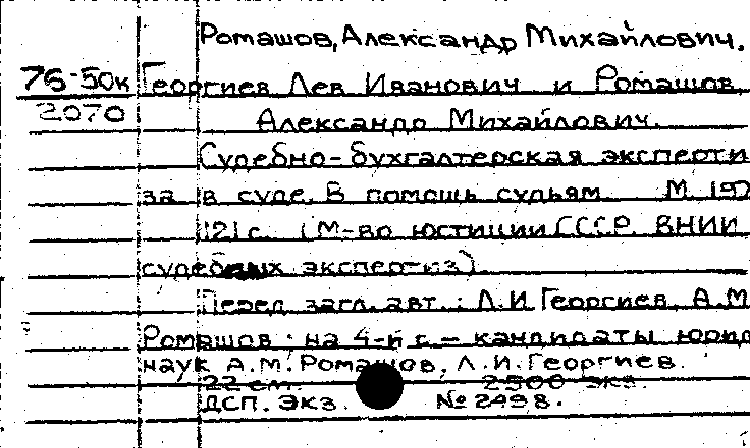 Ромашов, Александр Михайлович.
76-50к Георгиев Лев Иванович и Ромашов
2070 Александр Михайлович.
Судебно-бухгалтерская эксперти
за в суде. В помощь судьям. М 197
121 с. (М-во юстиции СССР. ВНИИ
судебных экспертиз)
Перед загл. авт.: Л.И Георгиев, А.М
Ромашов; на 4-й с. - кандидаты юрид
наук А.М. Ромашов, Л.И. Георгиев.
22 см. 2500 экз.
ДСП. Экз. № 2498.